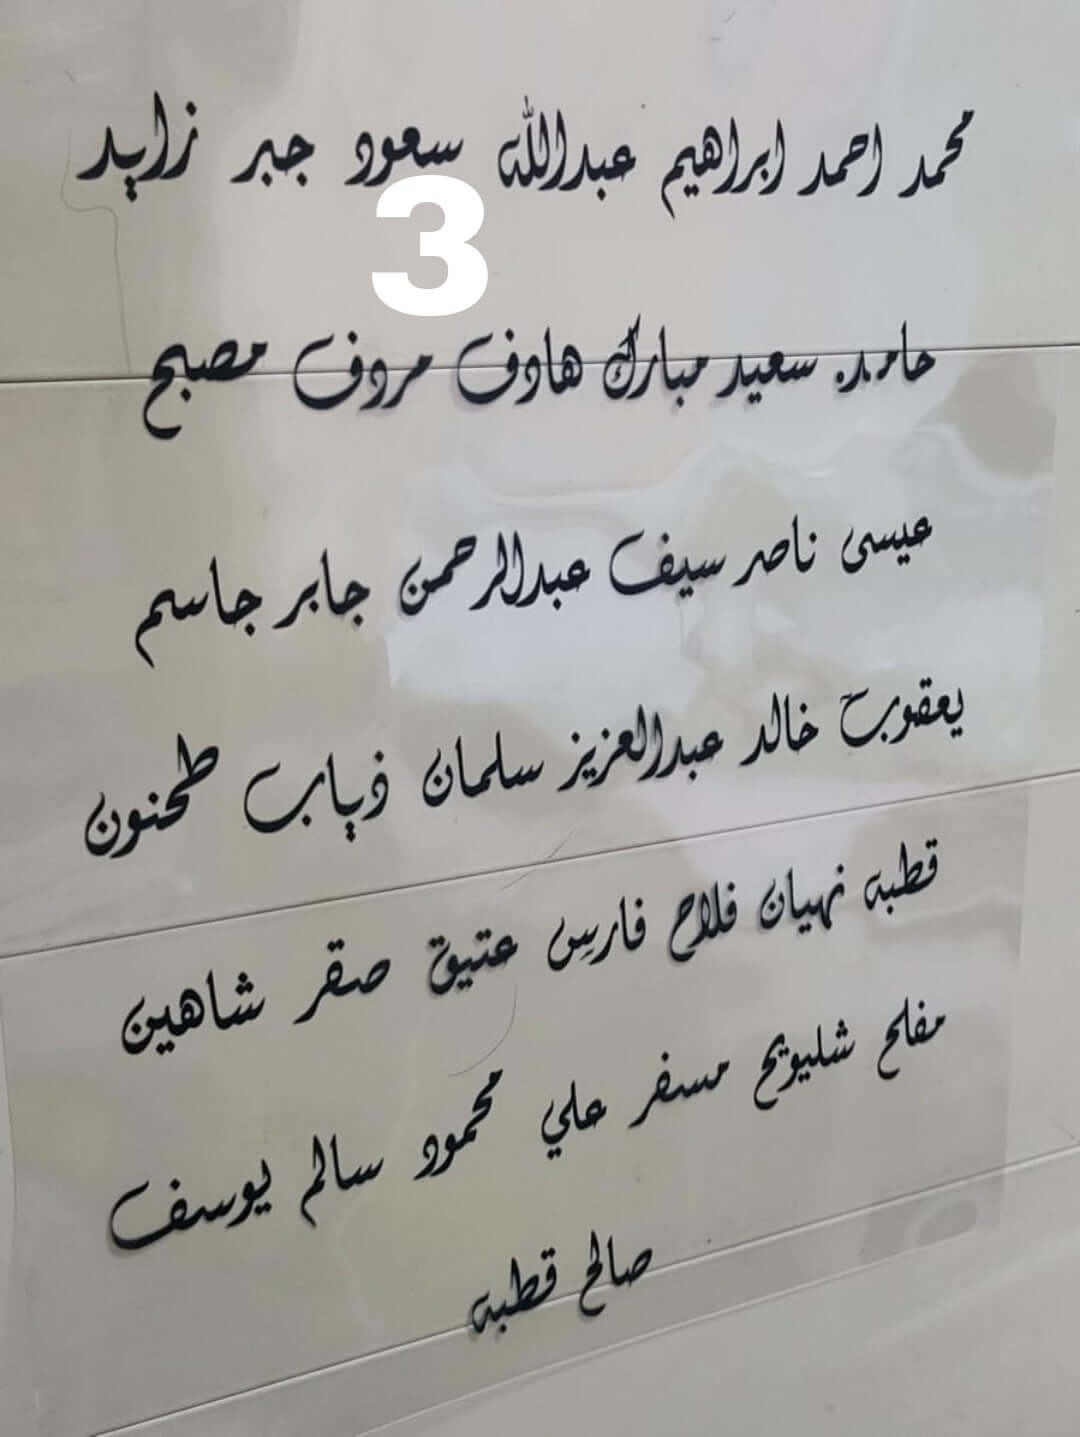 محمد احمد ابراهيم عبدالله سعود جبر زايد
3
حامد سعيد مبارك هادف مروف مصبح
عيسى ناصر سيف عبدالرحمن جابر جاسم
يعقوب خالد عبدالعزيز سلمان ذياب طحنون
قطبه نهيان فلاح فارس عتيق صقر شاهين
مفلح شليويح مسفر علي محمود سالم يوسف
صالح قطبه